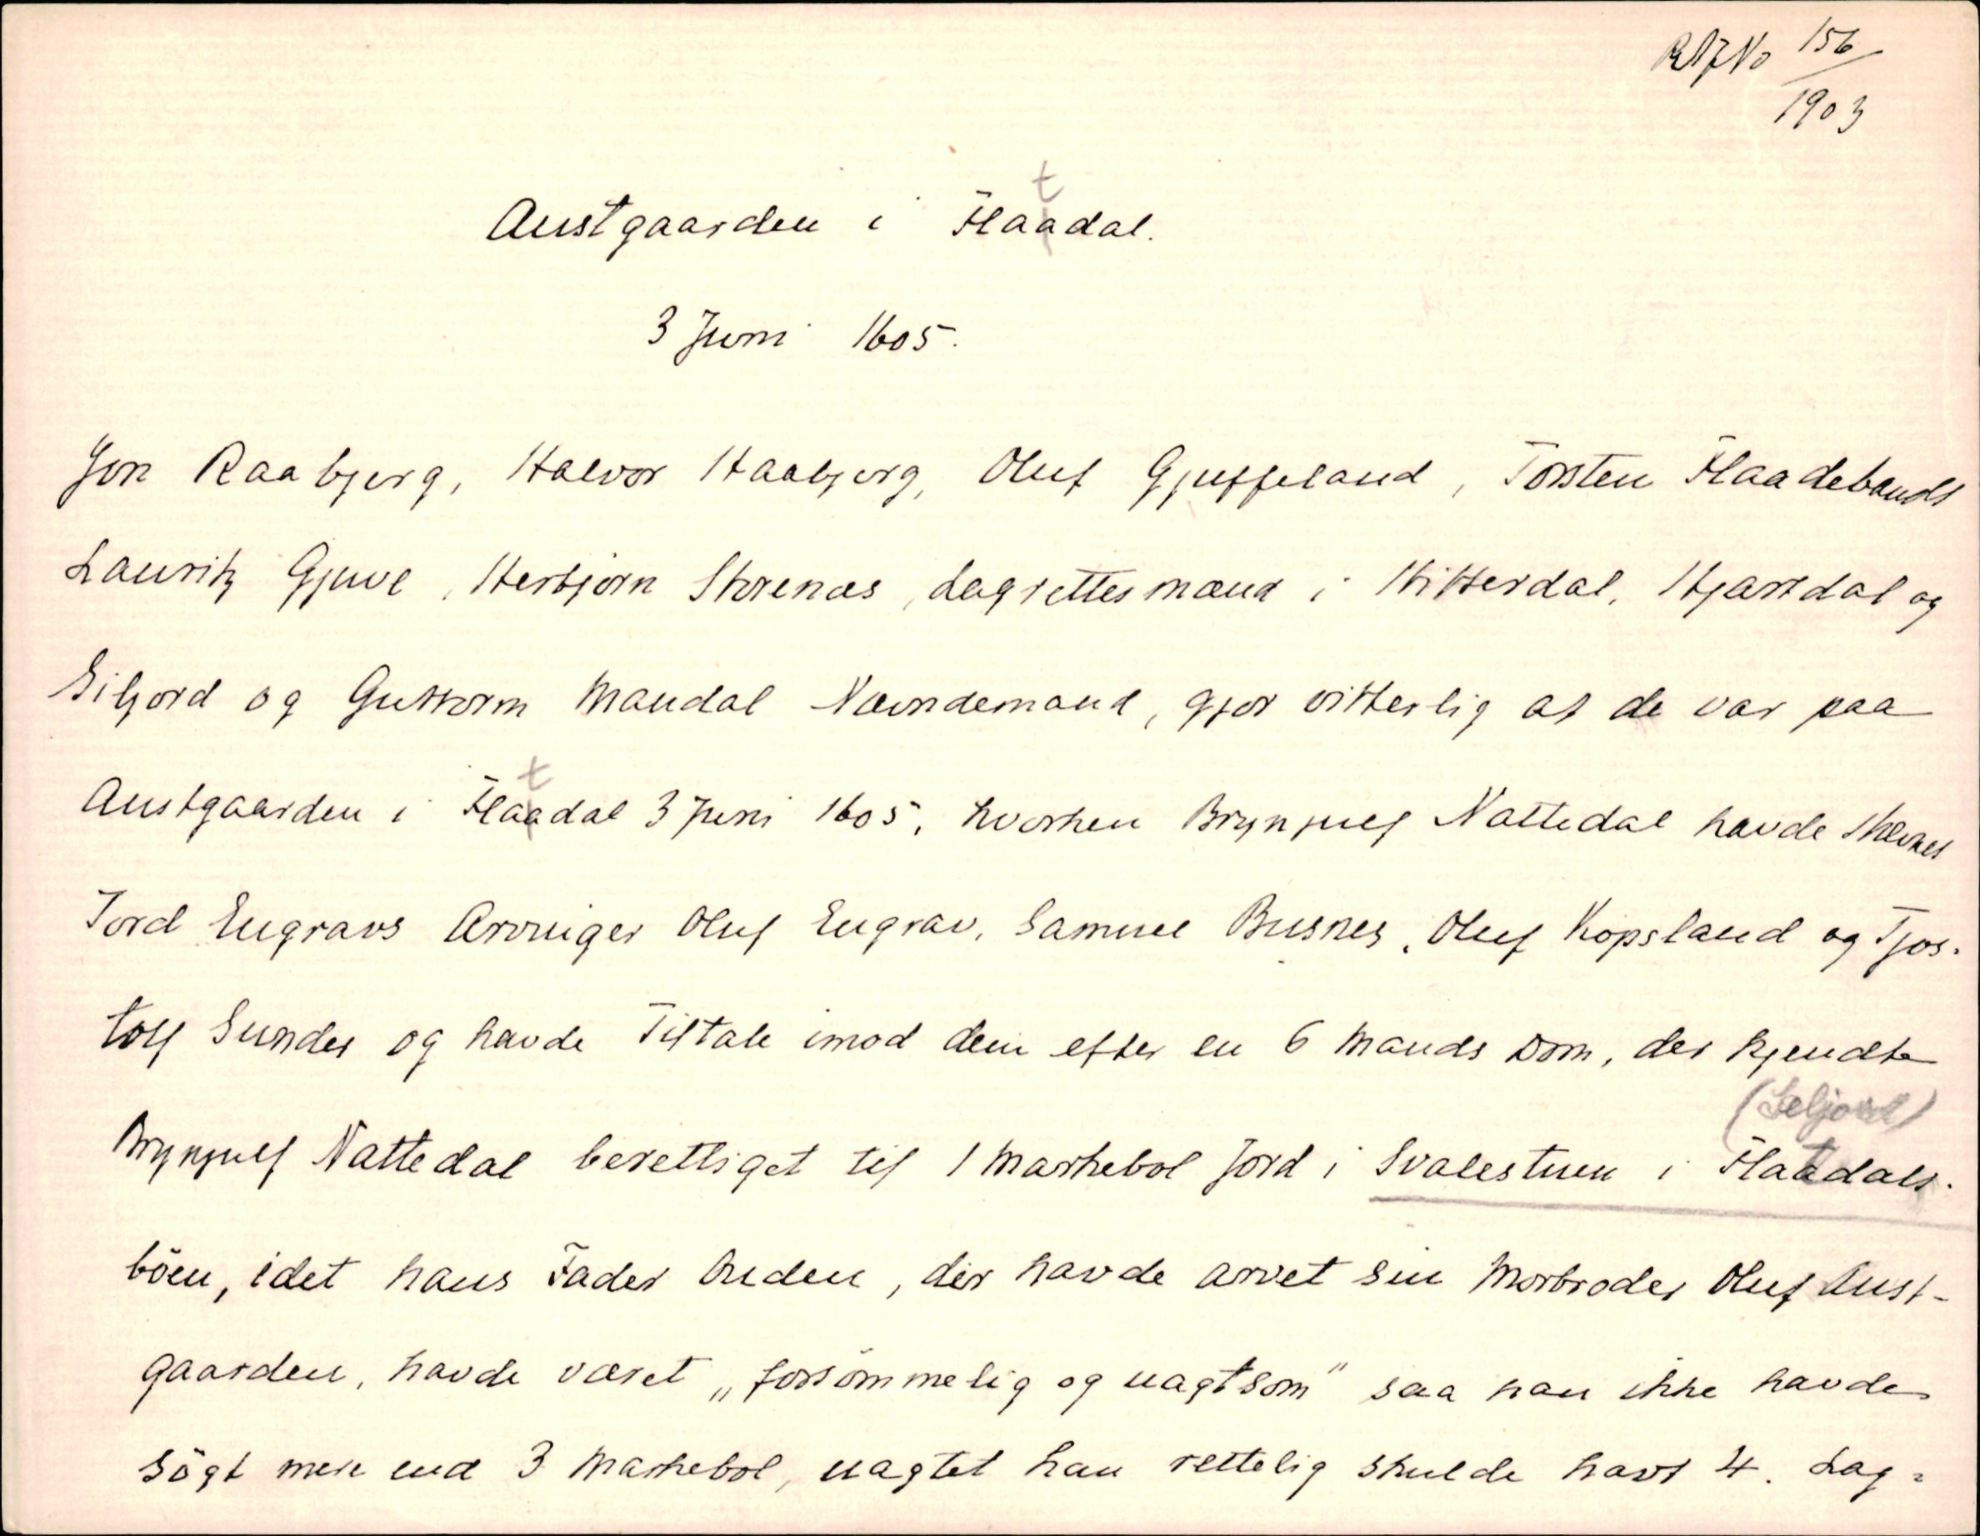 RAJNo 156/1903
Austgaarden i Flatdal.
3 Juni 1605.
Jon Raabjerg, Halvor Haabjerg, Oluf Gjuffeland, Torsten Flaadebands
Lauritz Gjuve, Herbjørn Storenæs, Lagrettesmænd i Hitterdal, Hjartdal og
Siljord og Guttorm Mandal Nævndemand, gjør vitterlig at de var paa
Austgaarden i Flatdal 3 Juni 1605, hvorhen Brynjulf Nattedal havde stævnet
Tord Engravs Arvinger Oluf Engrav, Samuel Busnes, Oluf Kopsland og Tjos-
tolf Sundes og havde Tiltale imod dem efter en 6 Mands Dom, der kjendte
(Seljord)
Brynjulf Nattedal berettiget til 1 Markebol Jord i Svalestuen i Flatdals-
bøen, idet hans Fader Anden, der havde arvet sin Morbroder Oluf Aust-
gaarden, havde været „forsømmelig og uagtsom" saa han ikke havde
søgt mere end 3 Markebol, uagtet han rettelig skulde havt 4. Lag-